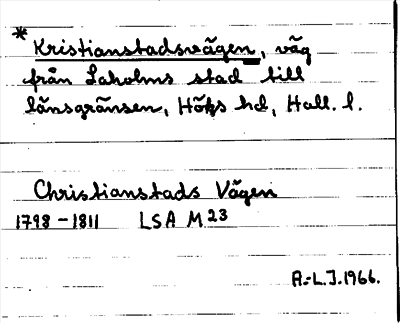 * Kristianstadsvägen, väg
från Laholms stad till
länsgränsen, Höks hd, Hall. l.
Christianstads Vägen
1798-1811 LSA M 23
A.-L.J. 1966.